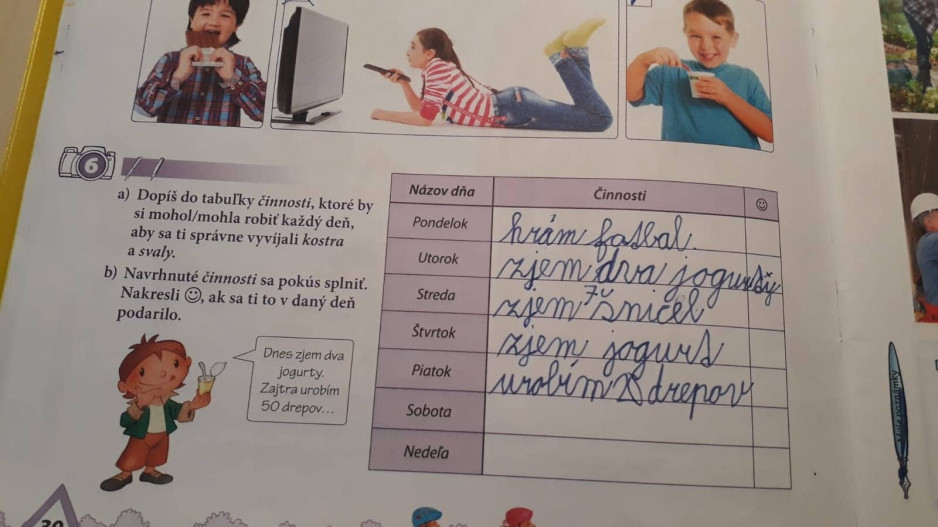 6
a) Dopíš do tabuľky činnosti, ktoré by
si mohol/mohla robiť každý deň,
aby sa ti správne vyvíjali kostra
a svaly.
b) Navrhnuté činnosti sa pokús splniť.
Nakresli ☺, ak sa ti to v daný deň
podarilo.
Dnes zjem dva
jogurty.
Zajtra urobím
50 drepov...
Názov dňa Činnosti ☺
Pondelok hrám fotbal
Utorok zjem dva jogurty
Streda zjem 7 šnicel
Štvrtok zjem jogurt
Piatok urobím drepov
Sobota
Nedeľa
30